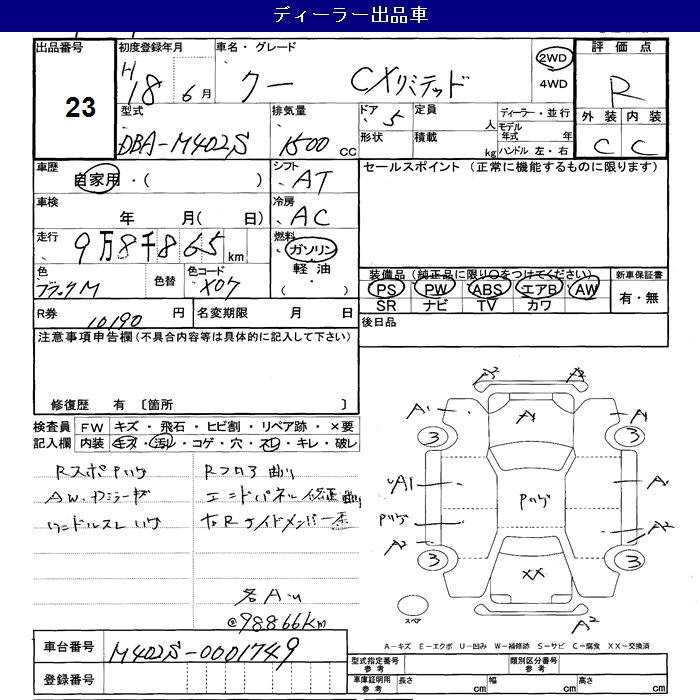 ディーラー出品車
出品番号
23
初度登録年月
H18 6月
車名・グレード
クー CXリミテッド
2WD
4WD
評価点
R
外装 内装
C C
型式
DBA-M402S
排気量
1500 CC
ドア
5
定員
人
形状
積載
kg
ディーラー・並行
モデル年式 年
ハンドル 左・右
車歴
自家用・( )
シフト
AT
セールスポイント (正常に機能するものに限ります)
車検
年 月( 日)
冷房
AC
走行
9万8千865km
燃料
ガソリン
軽油
( ・ )
色
ブラックM
色替
色コード
X07
装備品 (純正品に限り○をつけてください)
PS PW ABS エアB AW
SR ナビ TV カワ
新車保証書
有・無
R券
10190 円
名変期限 月 日
後日品
注意事項申告欄 (不具合内容等は具体的に記入して下さい)
修復歴 有 〔箇所 〕
検査員 FW キズ・飛石・ヒビ割・リペア跡・×要
記入欄 内装 キズ・汚れ・コゲ・穴・スレ・キレ・破レ
RスポPハゲ
Rフロア曲り
エンドパネル修正曲
ハンドルスレハゲ
右Rサイドメンバー
各AU
@98866km
A² A²
A1 A1 A
3 3
UA1 Pハゲ A
Pハゲ A²
A²
3 XX 3
スペア
A²
A-キズ E-エクボ U-凹み W-補修跡 S-サビ C-腐食 XX-交換済
車台番号
M402S-0001749
登録番号
型式指定番号 参考
類別区分番号 参考
車庫証明用 参考
長さ cm
幅 cm
高さ cm